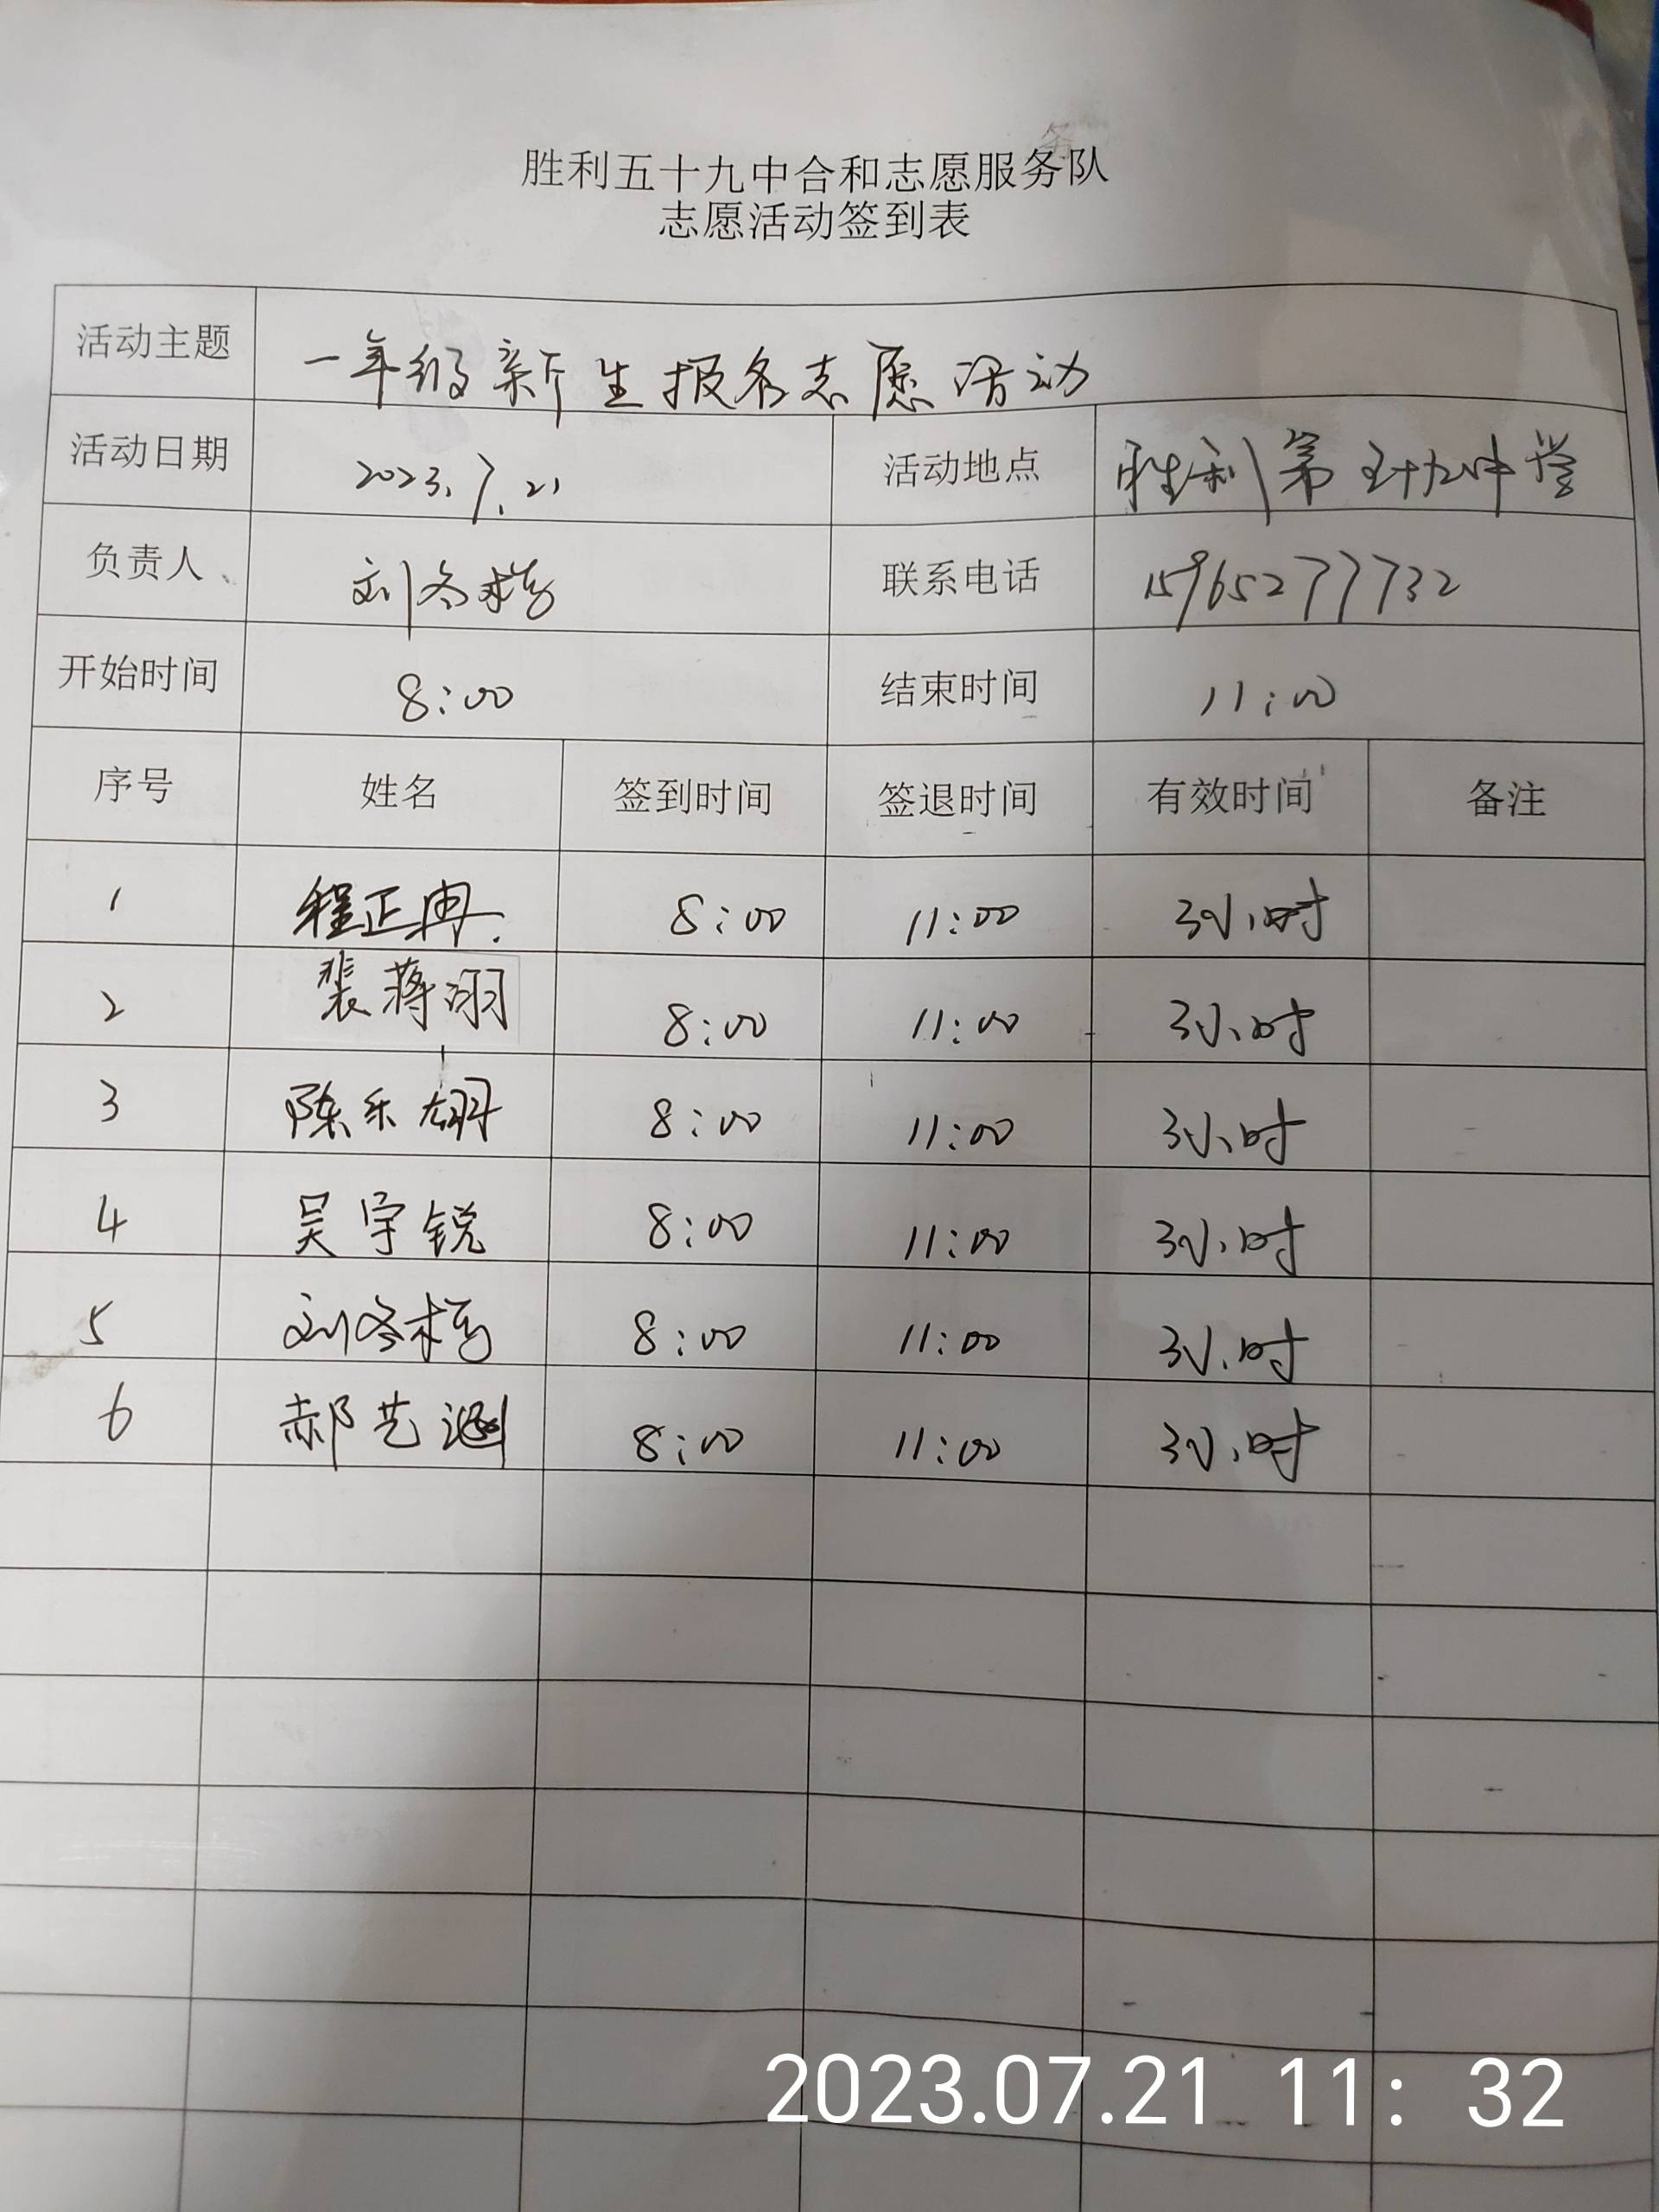 胜利五十九中合和志愿服务队
志愿活动签到表
活动主题 一年级新生报名志愿活动
活动日期 2023.7.21 活动地点 胜利第五十九中学
负责人 刘冬梅 联系电话 15965277732
开始时间 8:00 结束时间 11:00
序号 姓名 签到时间 签退时间 有效时间 备注
1 程正冉 8:00 11:00 3小时
2 裴蒋翊 8:00 11:00 3小时
3 陈乐翊 8:00 11:00 3小时
4 吴宇锐 8:00 11:00 3小时
5 刘冬梅 8:00 11:00 3小时
6 郝艺 8:00 11:00 3小时
2023.07.21 11: 32